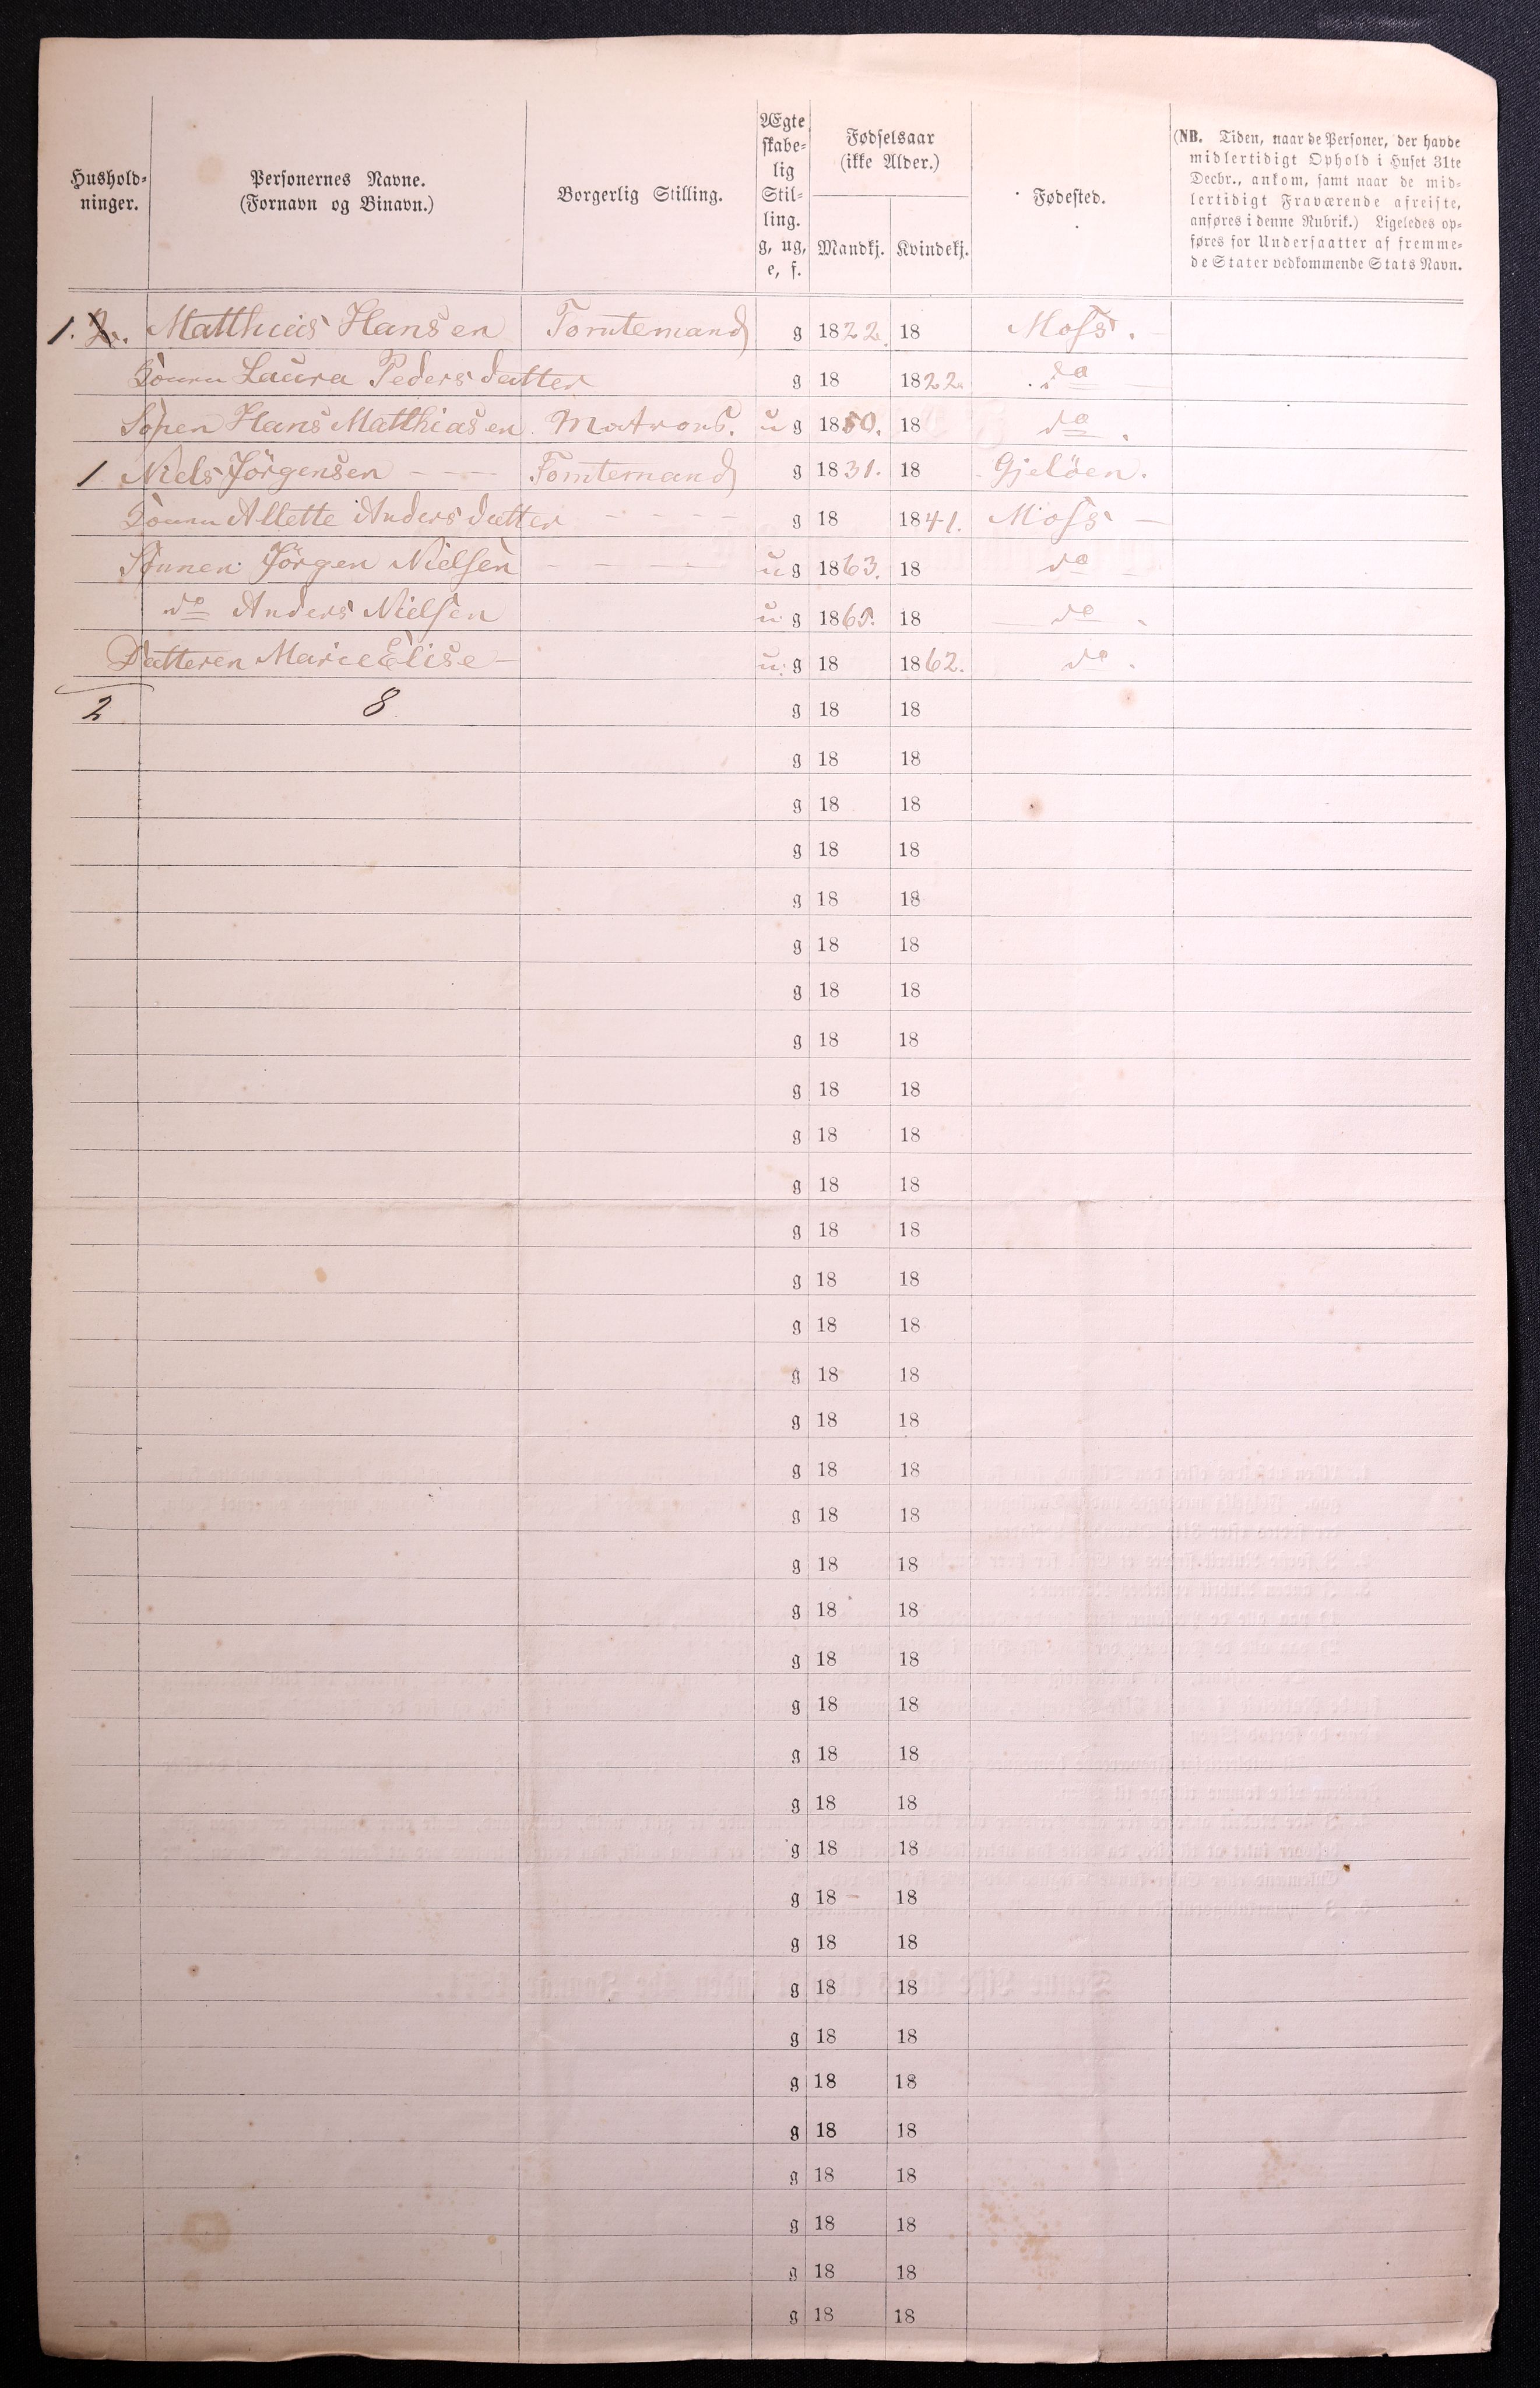 Hushold-
ninger.
Personernes Navne.
(Fornavn og Binavn.)
Borgerlig Stilling.
Ægte
skabe-
lig
Stil-
ling.
g, ug,
e, f.
Fødselsaar
(ikke Alder.)
Mandkj. Kvindekj.
Fødested.
(NB. Tiden, naar de Personer, der havde
midlertidigt Ophold i Huset 31te
Decbr., ankom, samt naar de mid-
lertidigt Fraværende afreiste,
anføres i denne Rubrik.) Ligeledes op-
føres for Undersaatter af fremme-
de Stater vedkommende Stats Navn.
1. 2. Matthias Hansen Tomtemand g 1822. 18 Moss.
Konen Laura Pedersdatter g 18 1822. do
Sønen Hans Matthiasen Matrons. u g 1850. 18 do
1 Niels Jørgensen Tomtemand g 1831. 18 Gjeløen.
Konen Allette Andersdatter g 18 1841. Moss
Sønnen Jørgen Nielsen u g 1863. 18 do
do Anders Nielsen u g 1865. 18 do
Datteren Marie Elise u. g 18 1862. do.
2 8 g 18 18
g 18 18
g 18 18
g 18 18
g 18 18
g 18 18
g 18 18
g 18 18
g 18 18
g 18 18
g 18 18
g 18 18
g 18 18
g 18 18
g 18 18
g 18 18
g 18 18
g 18 18
g 18 18
g 18 18
g 18 18
g 18 18
g 18 18
g 18 18
g 18 18
g 18 18
g 18 18
g 18 18
g 18 18
g 18 18
g 18 18
g 18 18
g 18 18
g 18 18
g 18 18